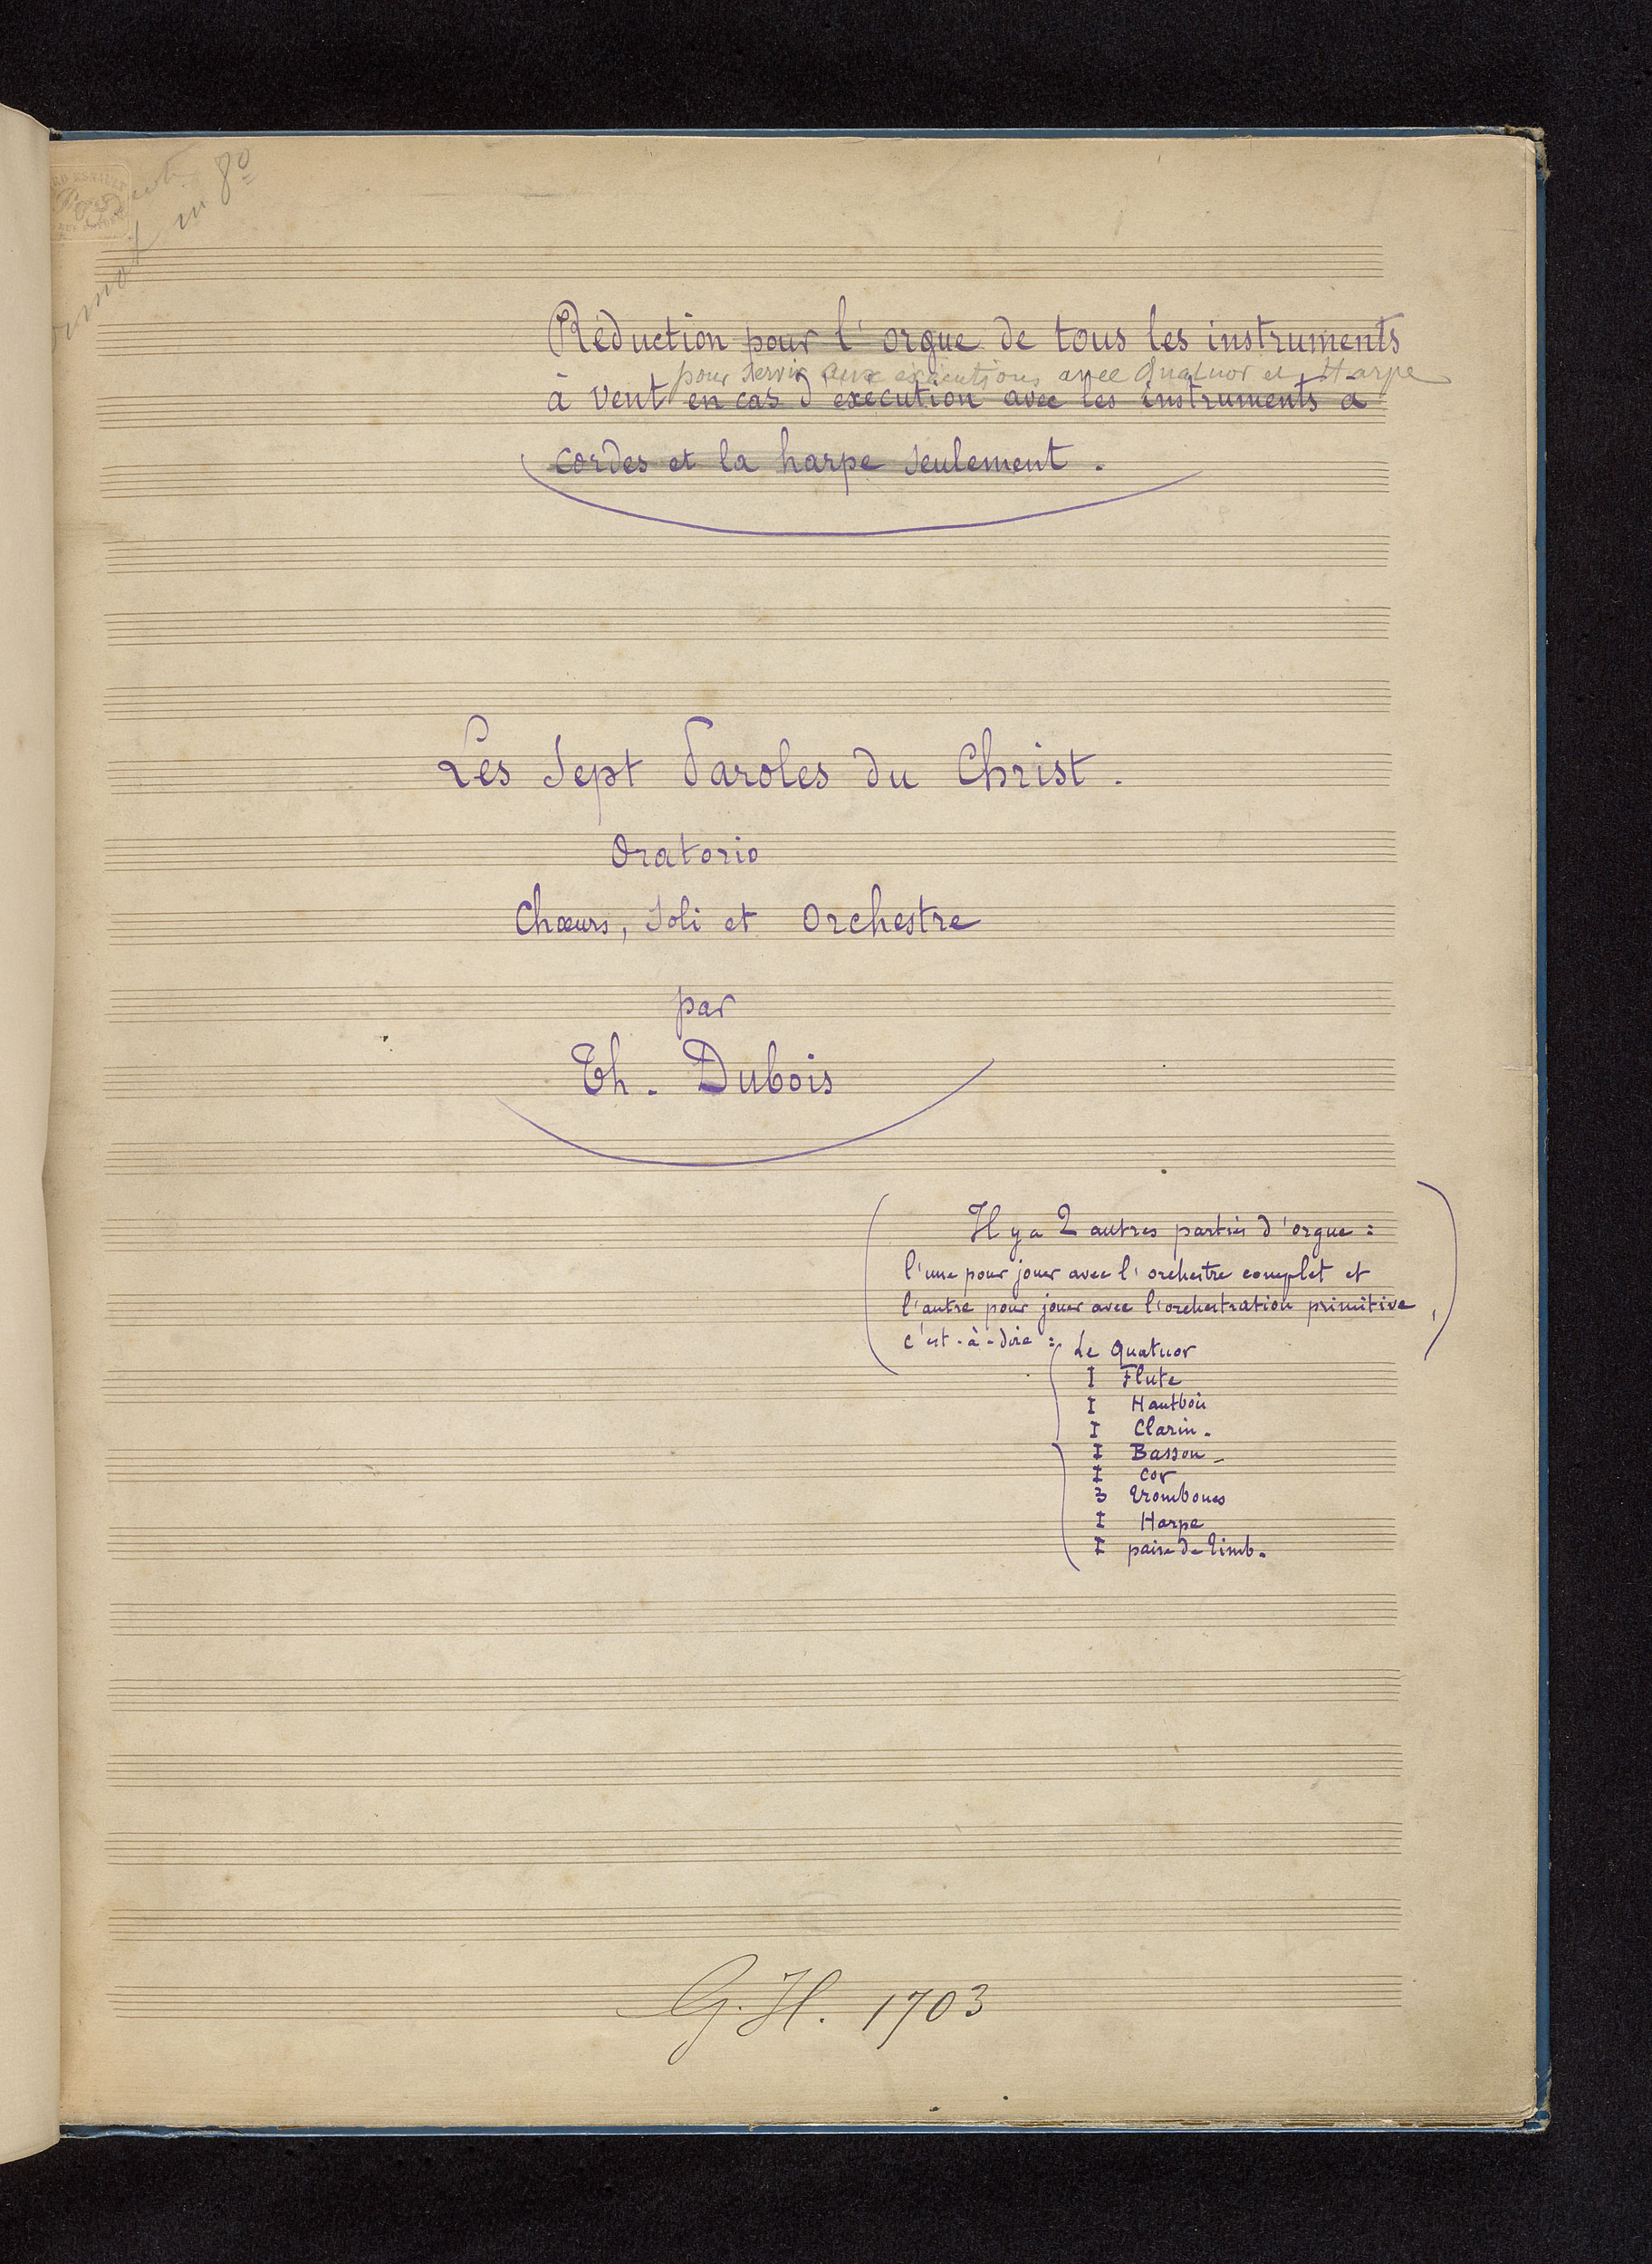 in 8º
Réduction pour l'orgue de tous les instruments
pour servir aux exécutions avec Quatuor et Harpe
à vent en cas d'exécution avec les instruments à
cordes et la harpe seulement.
Les Sept Paroles du Christ.
Oratorio
Chœurs, Soli et Orchestre
par
Th. Dubois
Il y a 2 autres parties d'orgue :
l'une pour jouer avec l'orchestre complet et
l'autre pour jouer avec l'orchestration primitive,
c'est-à-dire :
Le Quatuor
I Flute
I Hautbois
I Clarin.
I Basson
I Cor
3 Trombones
I Harpe
I paire de Timb.
G. H. 1703